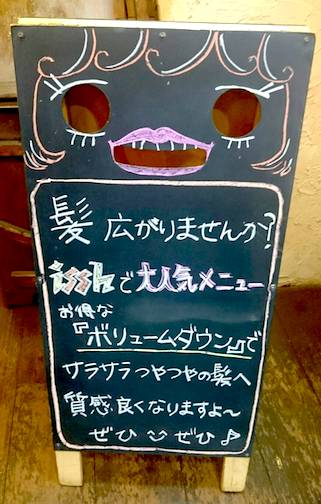 髪 広がりませんか?
isshで大人気メニュー
お得な
『ボリュームダウン』で
サラサラつやつやの髪へ
質感良くなりますよ〜
ぜひ ぜひ♪